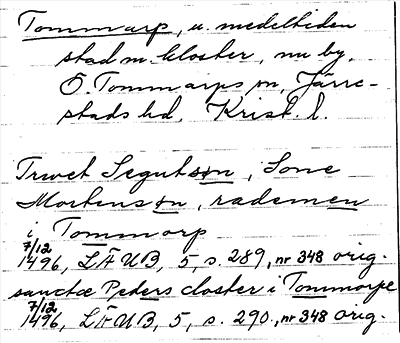 Tommarp, u. medeltiden
stad m. kloster, nu by,
Ö. Tommarps sn, Järre-
stads hd, Krist. l.
Trwet Segutsøn, Sone
Mortensøn, rademen
i Tommorp
7/12
1496, LÄUB, 5, s. 289, nr 348 orig.
sanctæ Peders closter i Tommorpe
7/12
1496, LÄUB, 5, s. 290, nr 348 orig.